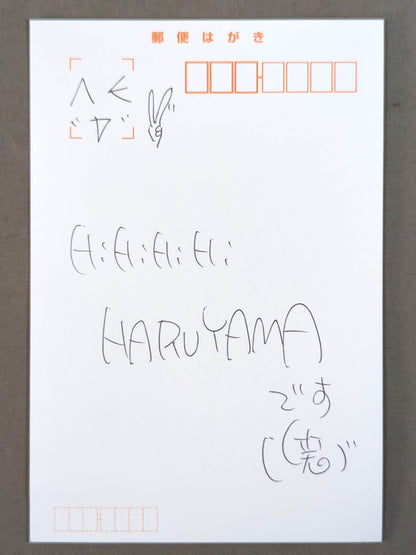 郵便はがき
Hi Hi Hi Hi
HARUYAMA
です
(笑)